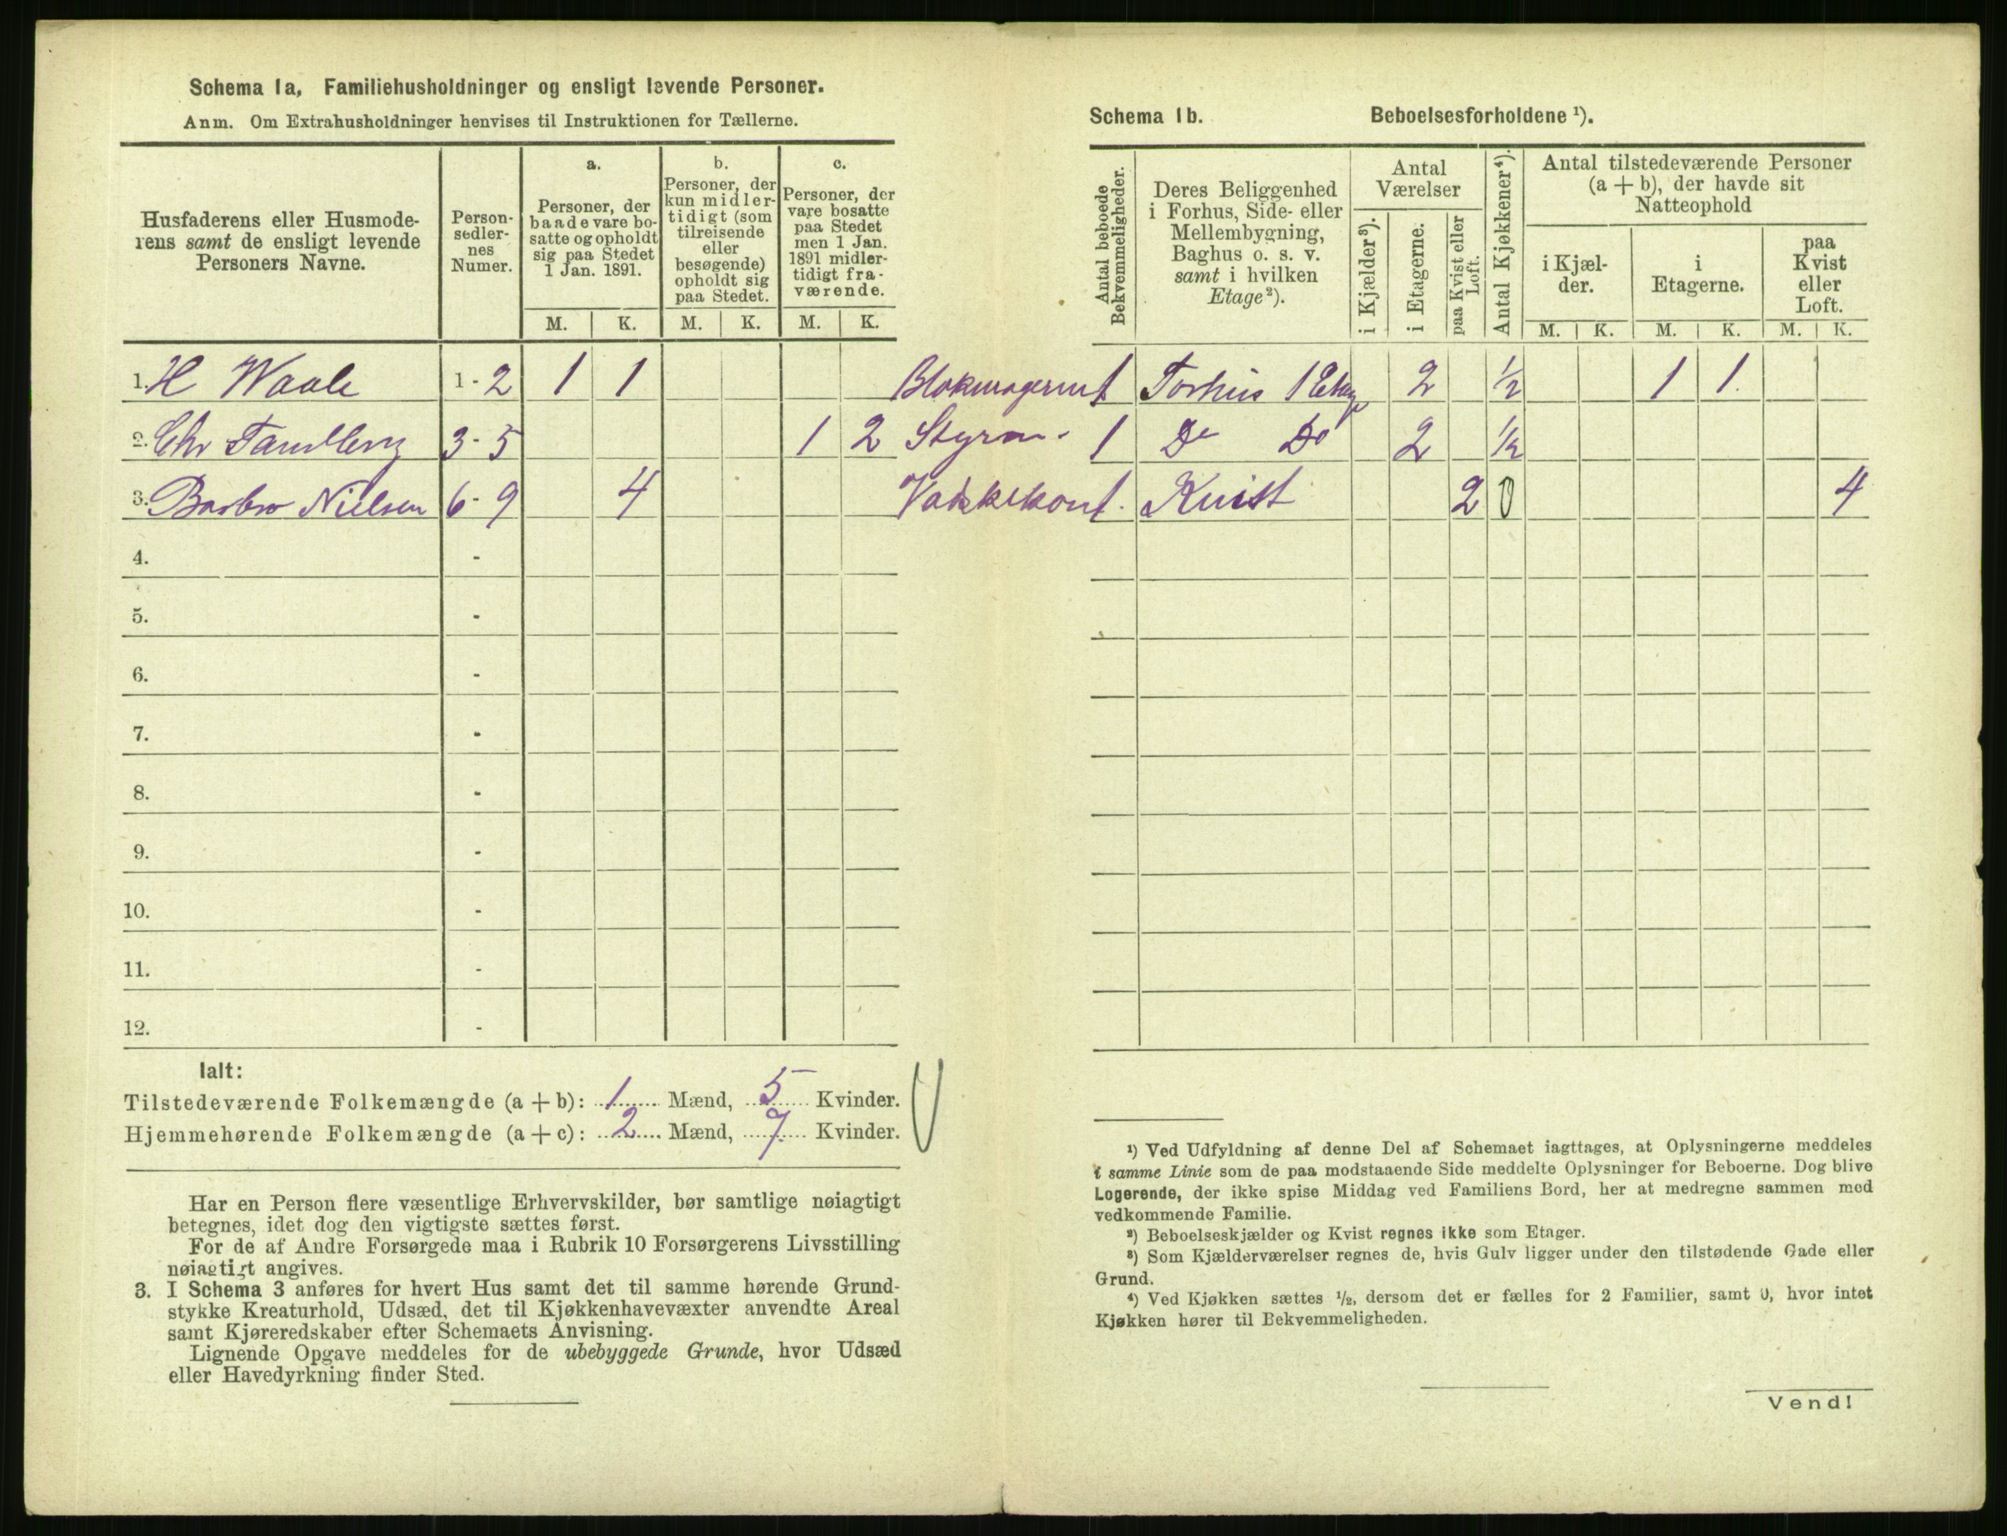 Schema 1a, Familiehusholdninger og ensligt levende Personer.
Anm. Om Extrahusholdninger henvises til Instruktionen for Tællerne.
Husfaderens eller Husmode-
rens samt de ensligt levende
Personers Navne.
Person-
sedler-
nes
Numer.
a.
Personer, der
baade vare bo-
satte og opholdt
sig paa Stedet
1 Jan. 1891.
b.
Personer, der
kun midler-
tidigt (som
tilreisende
eller
besøgende)
opholdt sig
paa Stedet.
c.
Personer, der
vare bosatte
paa Stedet
men 1 Jan.
1891 midler-
tidigt fra-
værende.
M. K. M. K. M. K.
1. H Waale 1 - 2 1 1
2. Chr Tandberg 3 - 5 1 2
3. Barbro Nielsen 6 - 9 4
4. -
5. -
6. -
7. -
8. -
9. -
10. -
11. -
12. -
Ialt:
Tilstedeværende Folkemængde (a + b): 1 Mænd, 5 Kvinder.
Hjemmehørende Folkemængde (a + c): 2 Mænd, 7 Kvinder.
Har en Person flere væsentlige Erhvervskilder, bør samtlige nøiagtigt
betegnes, idet dog den vigtigste sættes først.
For de af Andre Forsørgede maa i Rubrik 10 Forsørgerens Livsstilling
nøiagtigt angives.
3. I Schema 3 anføres for hvert Hus samt det til samme hørende Grund-
stykke Kreaturhold, Udsæd, det til Kjøkkenhavevæxter anvendte Areal
samt Kjøreredskaber efter Schemaets Anvisning.
Lignende Opgave meddeles for de ubebyggede Grunde, hvor Udsæd
eller Havedyrkning finder Sted.
Schema 1b. Beboelsesforholdene ¹).
Antal beboede
Bekvemmeligheder.
Deres Beliggenhed
i Forhus, Side- eller
Mellembygning,
Baghus o. s. v.
samt i hvilken
Etage ²).
Antal
Værelser
i Kjælder ³).
i Etagerne.
paa Kvist eller
Loft.
Antal Kjøkkener ⁴).
Antal tilstedeværende Personer
(a + b), der havde sit
Natteophold
i Kjæl-
der.
i
Etagerne.
paa
Kvist
eller
Loft.
M. K. M. K. M. K.
1 Forhus 1 Etage 2 ½ 1 1.
Styrm. 1 Do Do 2 ½
Kvist 2 0 4
¹) Ved Udfyldning af denne Del af Schemaet iagttages, at Oplysningerne meddeles
i samme Linie som de paa modstaaende Side meddelte Oplysninger for Beboerne. Dog blive
Logerende, der ikke spise Middag ved Familiens Bord, her at medregne sammen med
vedkommende Familie.
²) Beboelseskjælder og Kvist regnes ikke som Etager.
³) Som Kjælderværelser regnes de, hvis Gulv ligger under den tilstødende Gade eller
Grund.
⁴) Ved Kjøkken sættes ½, dersom det er fælles for 2 Familier, samt 0, hvor intet
Kjøkken hører til Bekvemmeligheden.
Vend!